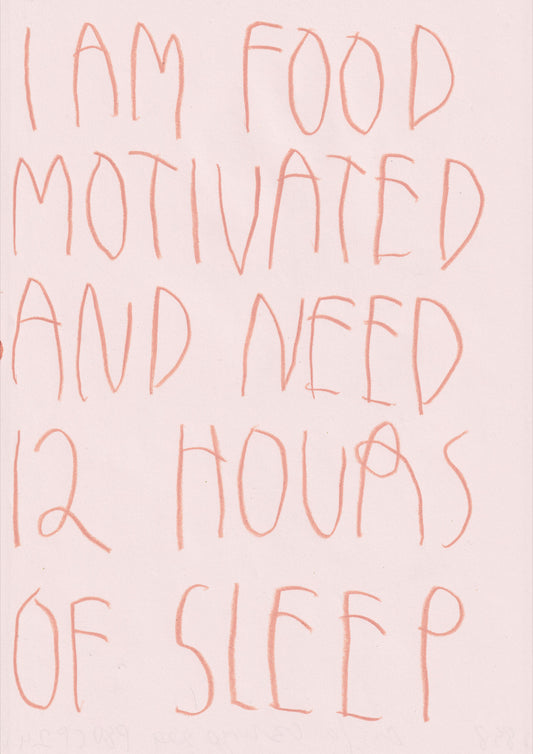 I AM FOOD
MOTIVATED
AND NEED
12 HOURS
OF SLEEP